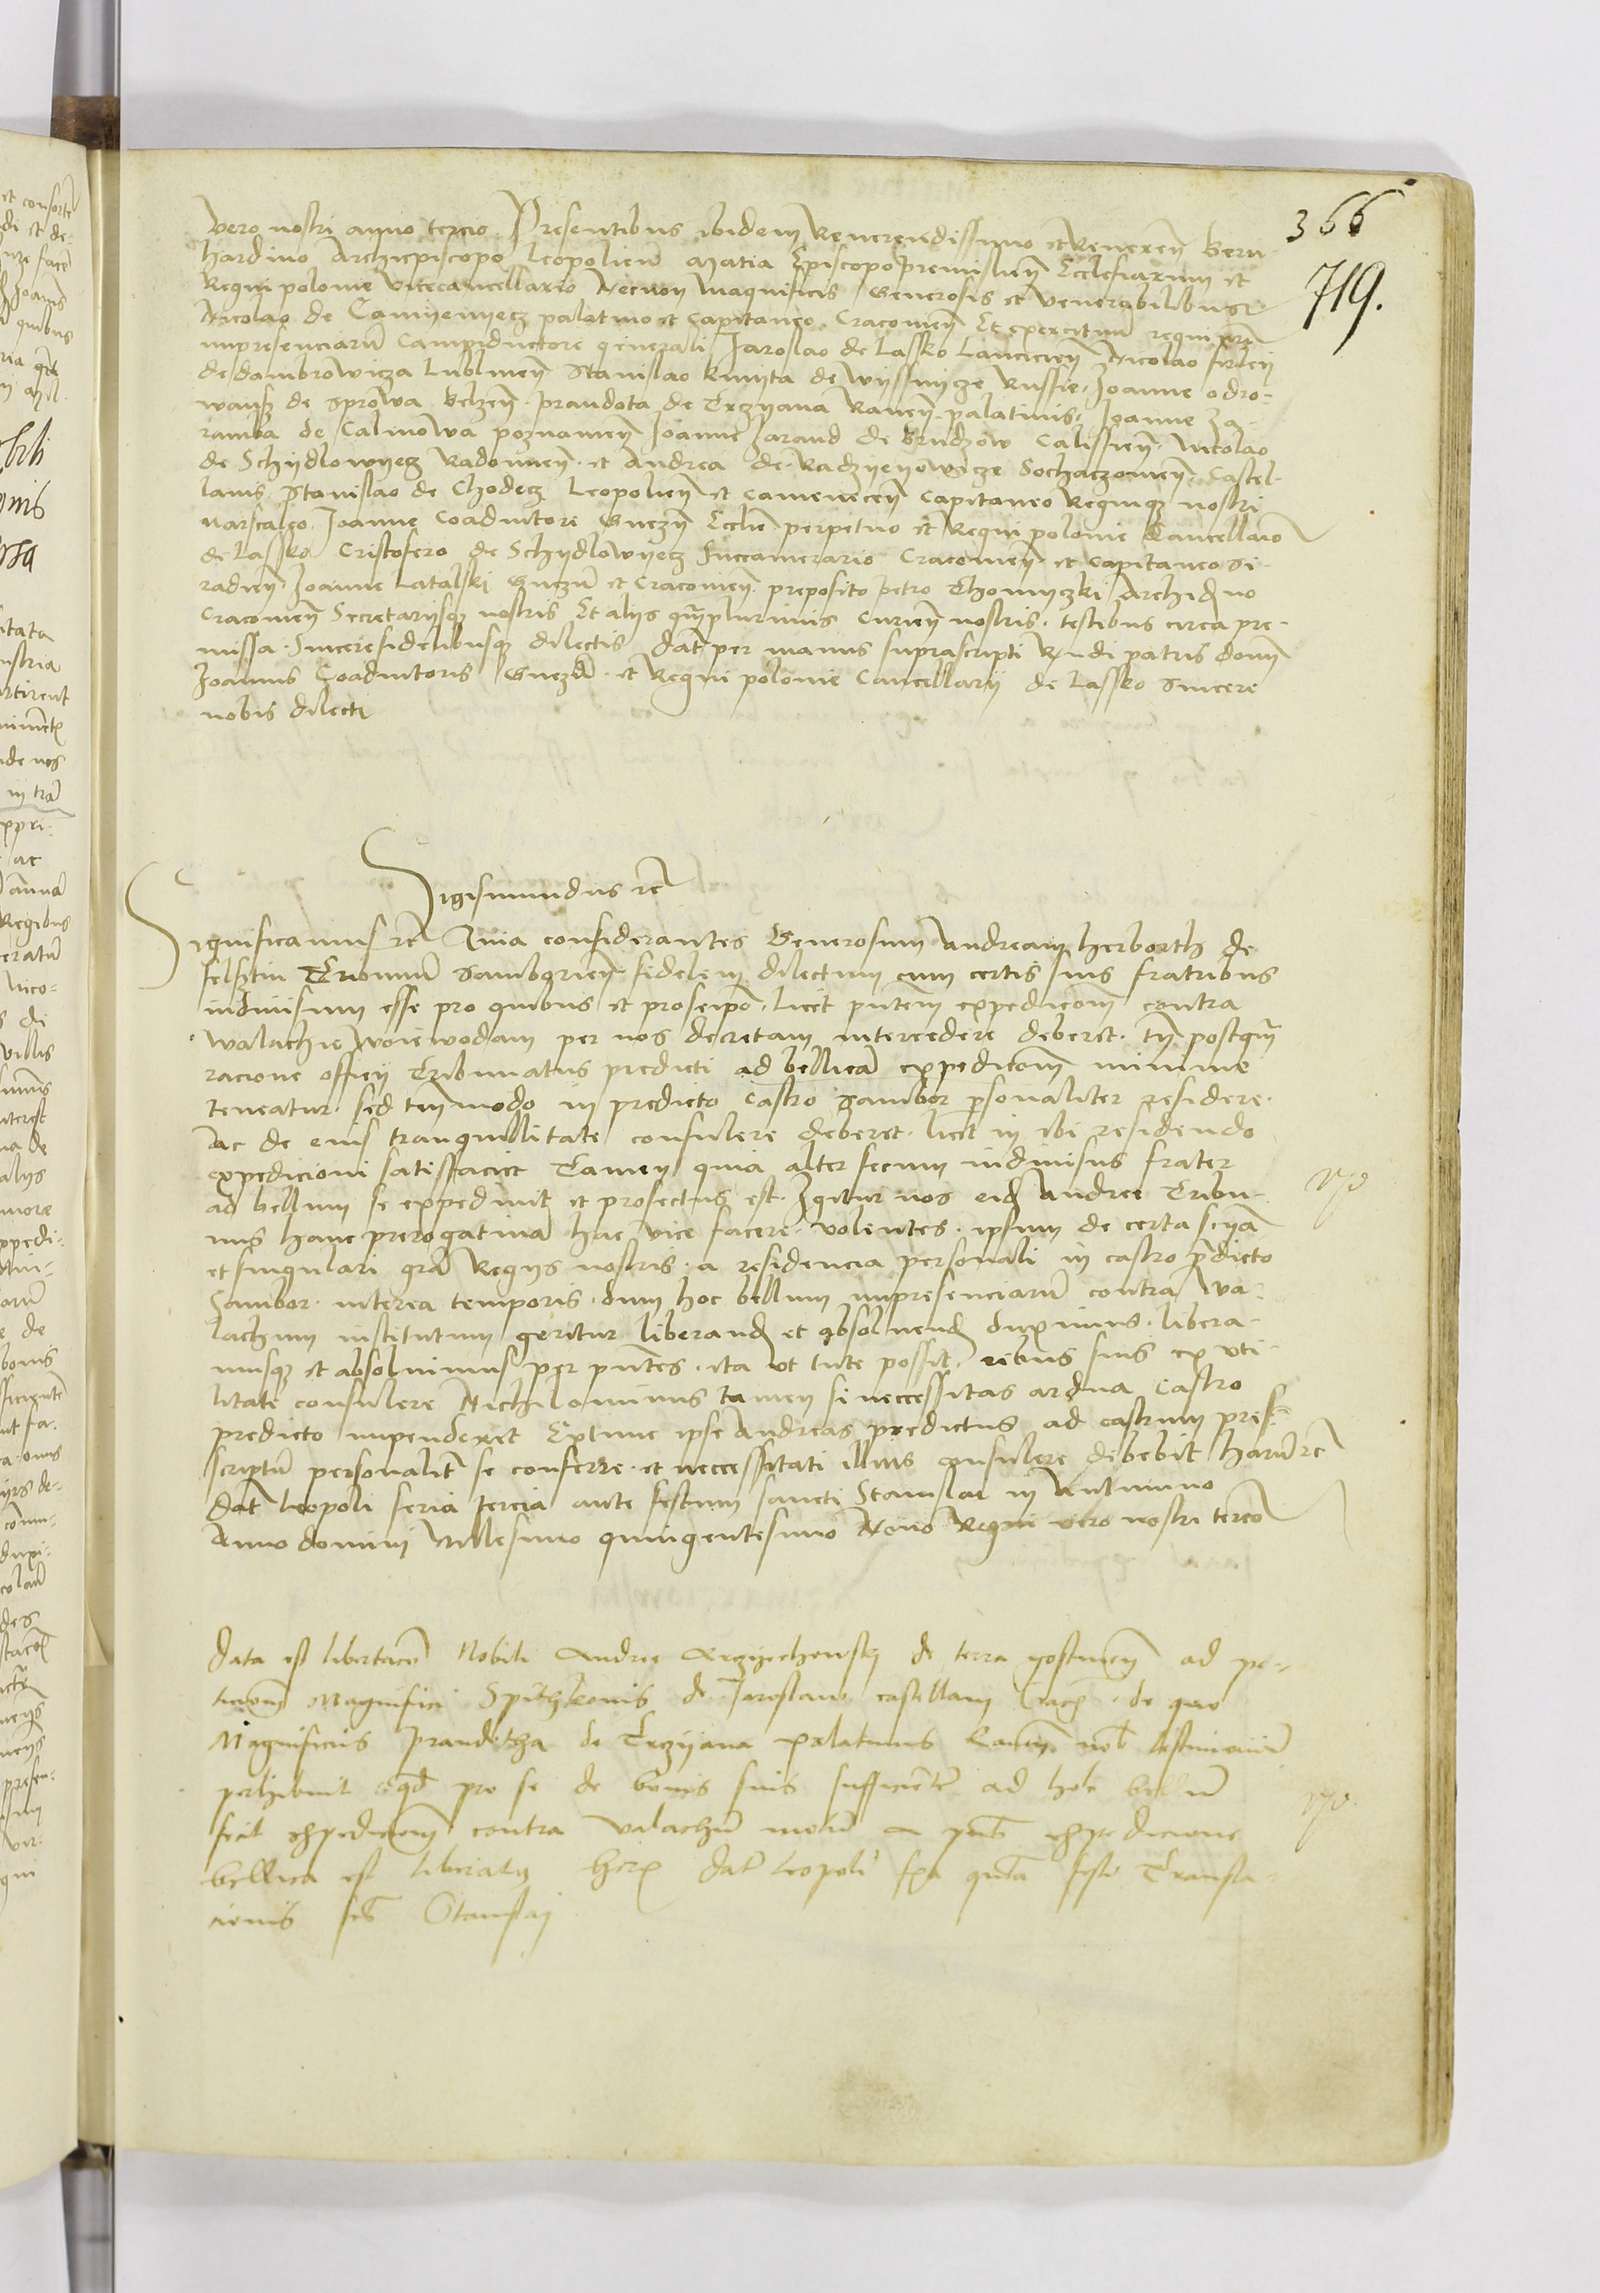 366
719.
vero nostri anno tercio Presentibus ibidem Reverendissimo et Reveren Bern-
hardino Archiepiscopo Leopolien Matia Episcopo premislien Ecclesiarum et
Regni polonie vicecancellario Necnon Magnificis Generosis et venerabilibus
Nicolao de Camyenyecz palatino et Capitaneo Cracovien Et exercituum regni nri
inpresenciarum Campiductore generali Jaroslao de Lassko Lancicien Nicolao firley
de dambrowicza Lublinen Stanislao kmyta de wyssnycze Russie Joanne odro-
wansz de Sprowa Belzen prandota de Trzyana Raven palatinis Joanne Za-
ramba de Calinowa poznanien Joanne Jarand de Brudzow Calissien Nicolao
de Schydlowyecz Radomien et Andrea de Radzyeyowicze Sochaczovien Castel-
lanis Stanislao de Chodecz Leopolien et camenecen Capitaneo Regnique nostri
Marscalco Joanne Coadiutore Gnezn Ecclie perpetuo et Regni polonie Cancellario
de Lassko Cristofero de Schydlowyecz succamerario Cracovien et Capitaneo Si-
radien Joanne Latalski Gnezn et Cracovien preposito petro Thomyczki Archidno
Cracovien Secretariisque nostris Et aliis quamplurimis Curien nostris testibus circa pre-
missa Sincere fidelibusque dilectis dat per manus suprascripti Rndi patris domi
Joannis Coadiutoris Gnezn et Regni polonie Cancellarii de Lassko sincere
nobis dilecti
Sigismundus rc
Significamus rc Quia considerantes Generosum Andream herborth de
felsztin Tribunum Samborien fidelem dilectum cum certis suis fratribus
indivisum esse pro quibus et pro seipo licet pntem expedicom contra
walachie woiewodam per nos decretam intercedere deberet tn postqm
racione officii Tribunatus predicti ad bellica expedicom minime
teneatur sed tnmodo in predicto Castro Sambor personaliter residere
ac de eius tranquillitate consulere deberet licet in ibi residendo
expedicioni satisfaciet Tamen quia alter secum indivisus frater
ad bellum se expedivit et profectus est Igitur nos eid Andree Tribu-
nus hanc prerogativa hac vice facere volentes ipsum de certa sciencia
et singulari gra Regiis nostris a residencia personali in castro predicto
Sambor interea temporis dum hoc bellum inpresenciaru contra wa-
lachum institutum geritur liberand et absolvend duximus libera-
musque et absolvimus per pntes ita ut tute possit rebus suis ex uti-
litate consulere Nichilominus tamen si neccessitas ardua Castro
predicto inpenderet Extunc ipse Andreas predictus ad castrum pres-
criptu personalit se conferre et neccessitati illius consulere debebit haru rc
dat leopoli feria tercia ante festum sancti Stanislai in Autumno
Anno domini Millesimo quingentesimo Nono Regni vero nostri terco
Data est libertaco Nobili Andree de terra ad pe-
ticione Magnifici Spithkonis de Jaroslaw castellani Crac de quo
Magnificus Prandotha de Trzyana palatinus Raven nob testimoniu
perhibuit qd pro se de bonis suis sufficiente ad hoc bellu
fecit expedicionem contra valachu motu a pnti expedicione
bellica est liberatus Har Dat leopoli fia quita festi Transla-
cionis sti Stanislai